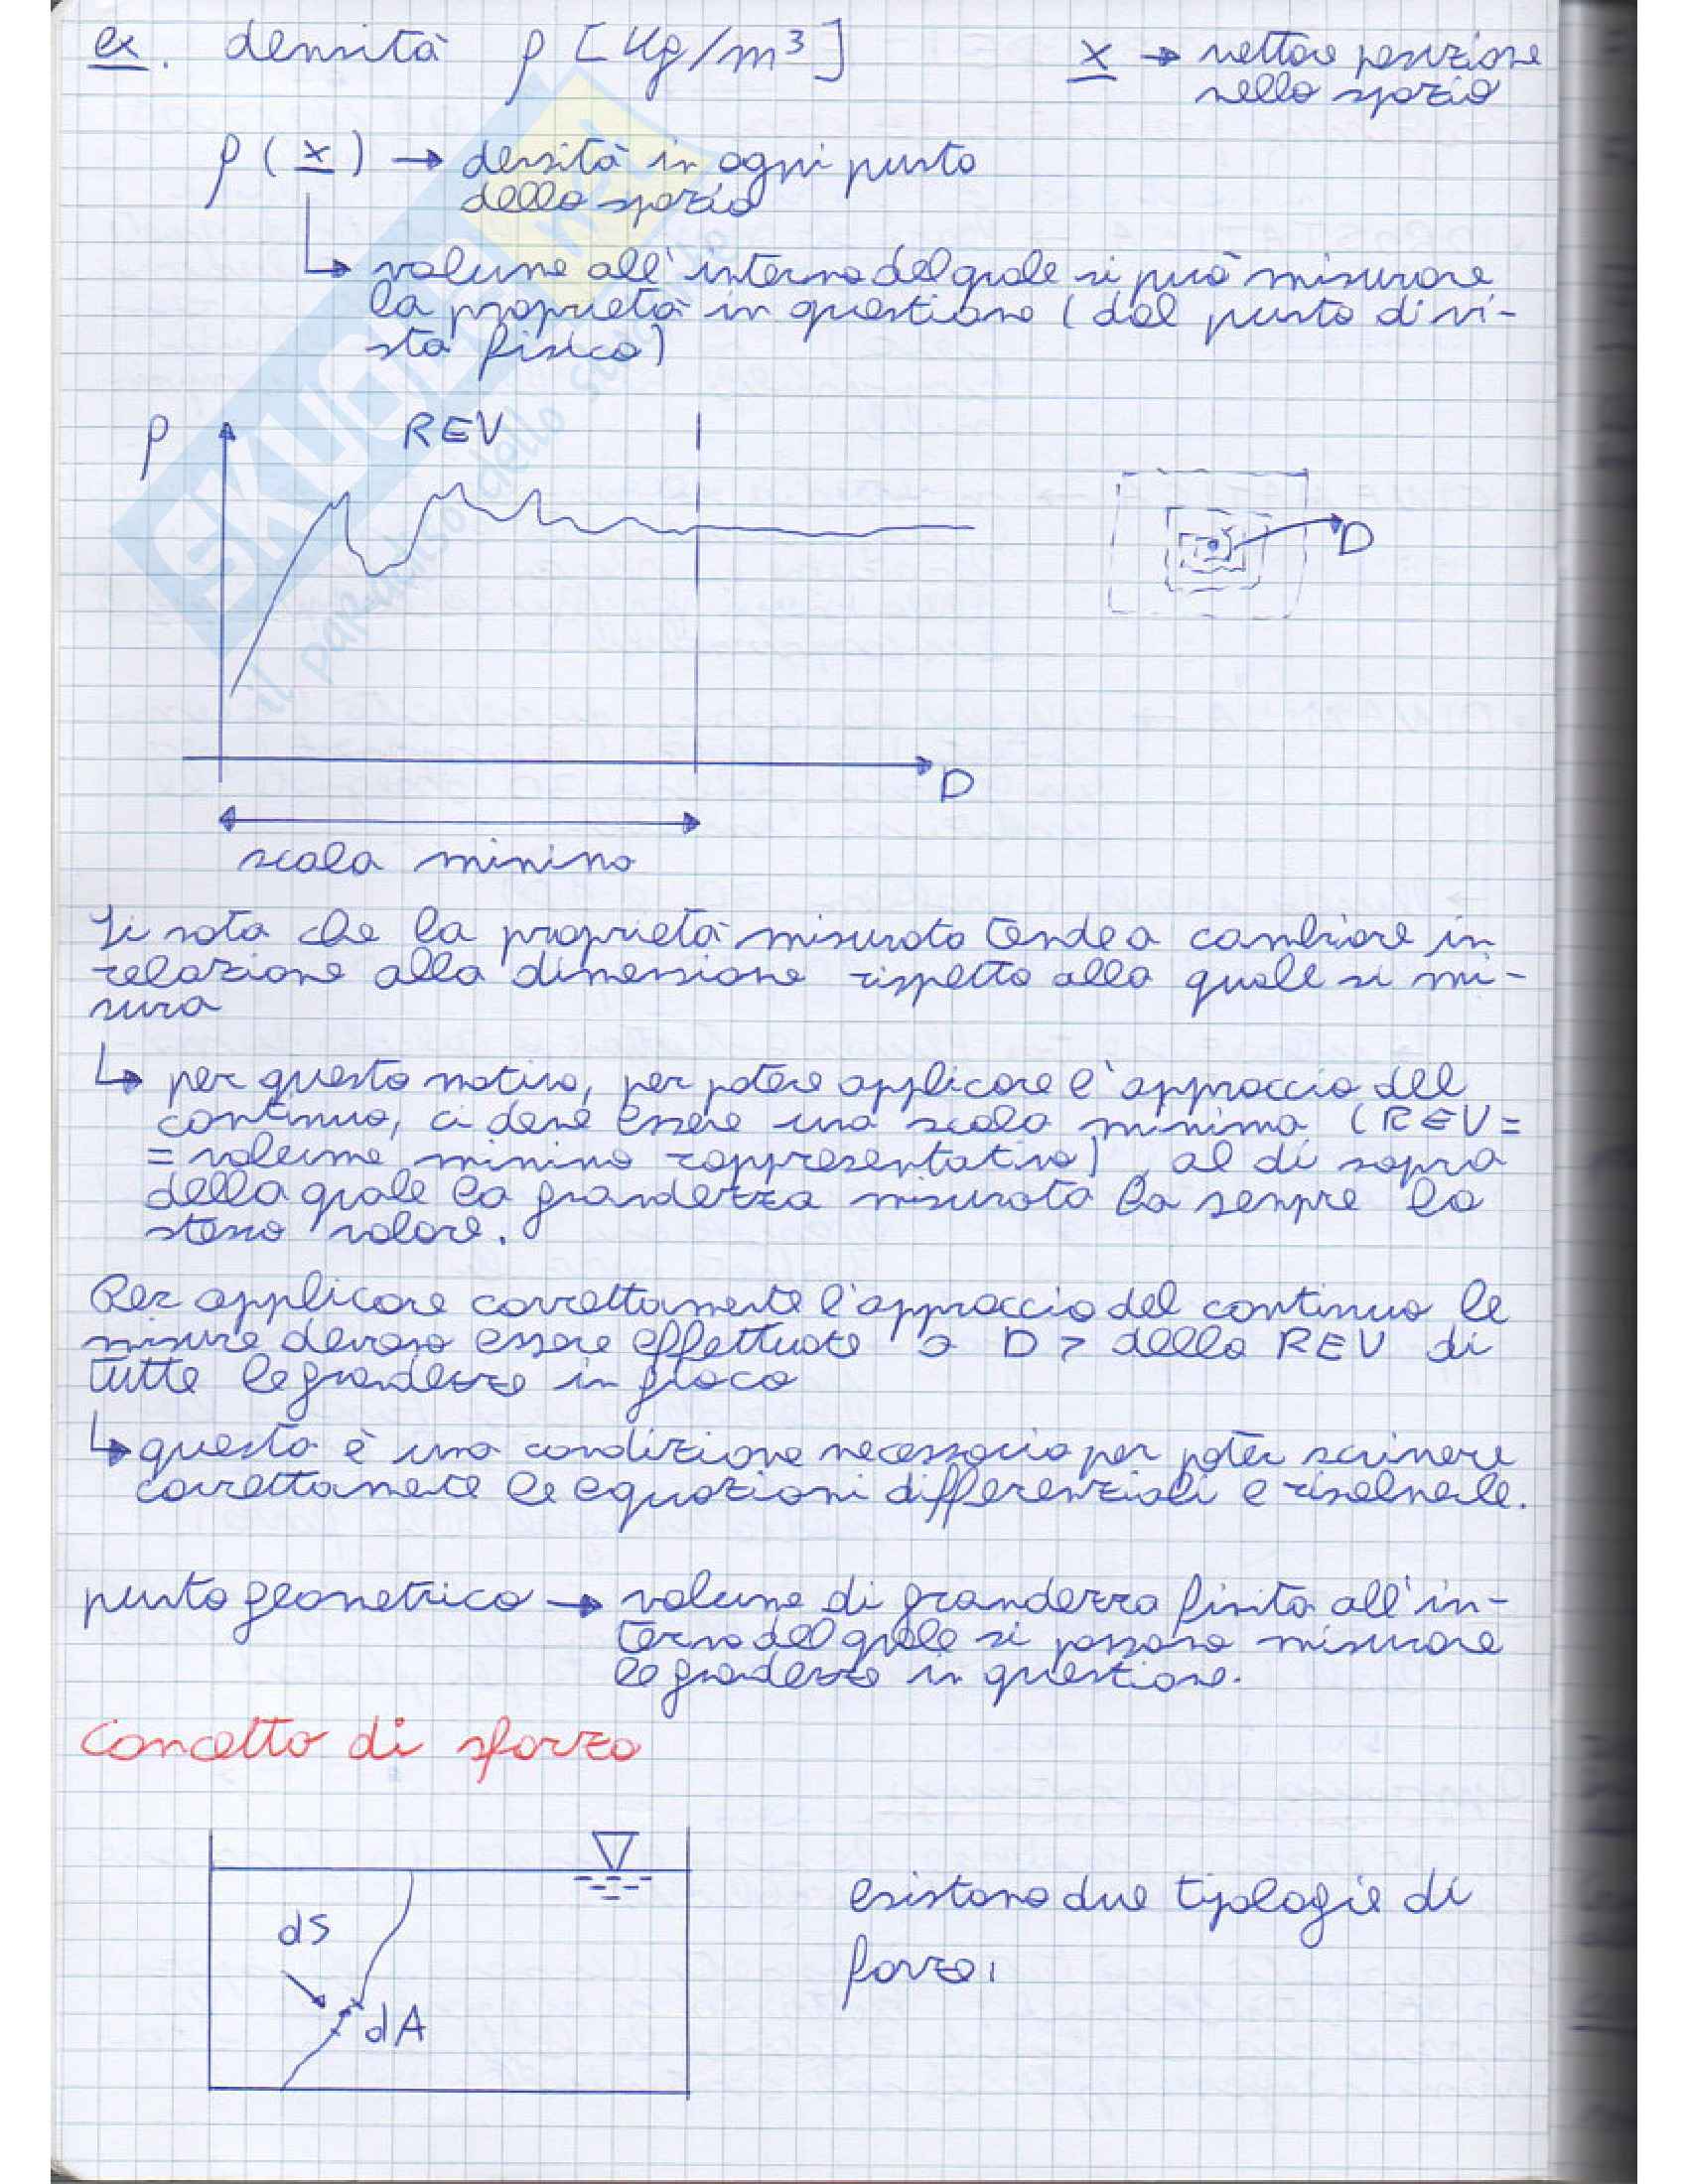 ex. densità ρ [Kg/m³]
x → vettore posizione
nello spazio
ρ (x) → densità in ogni punto
dello spazio
volume all'interno del quale si può misurare
la proprietà in questione (dal punto di vi-
sta fisico)
ρ
REV
D
D
scala minima
Si nota che la proprietà misurata tende a cambiare in
relazione alla dimensione rispetto alla quale si mi-
sura
↳ per questo motivo, per potere applicare l'approccio del
continuo, ci deve essere una scala minima (REV=
= volume minimo rappresentativo), al di sopra
della quale la grandezza misurata ha sempre lo
stesso valore.
Per applicare correttamente l'approccio del continuo le
misure devono essere effettuate a D > della REV di
tutte le grandezze in gioco
↳ questa è una condizione necessaria per poter scrivere
correttamente le equazioni differenziali e risolverle.
punto geometrico → volume di grandezza finita all'in-
terno del quale si possono misurare
le grandezze in questione.
Concetto di sforzo
dS
dA
esistono due tipologie di
forze:
SKUOLA.NET
il paradiso dello studente